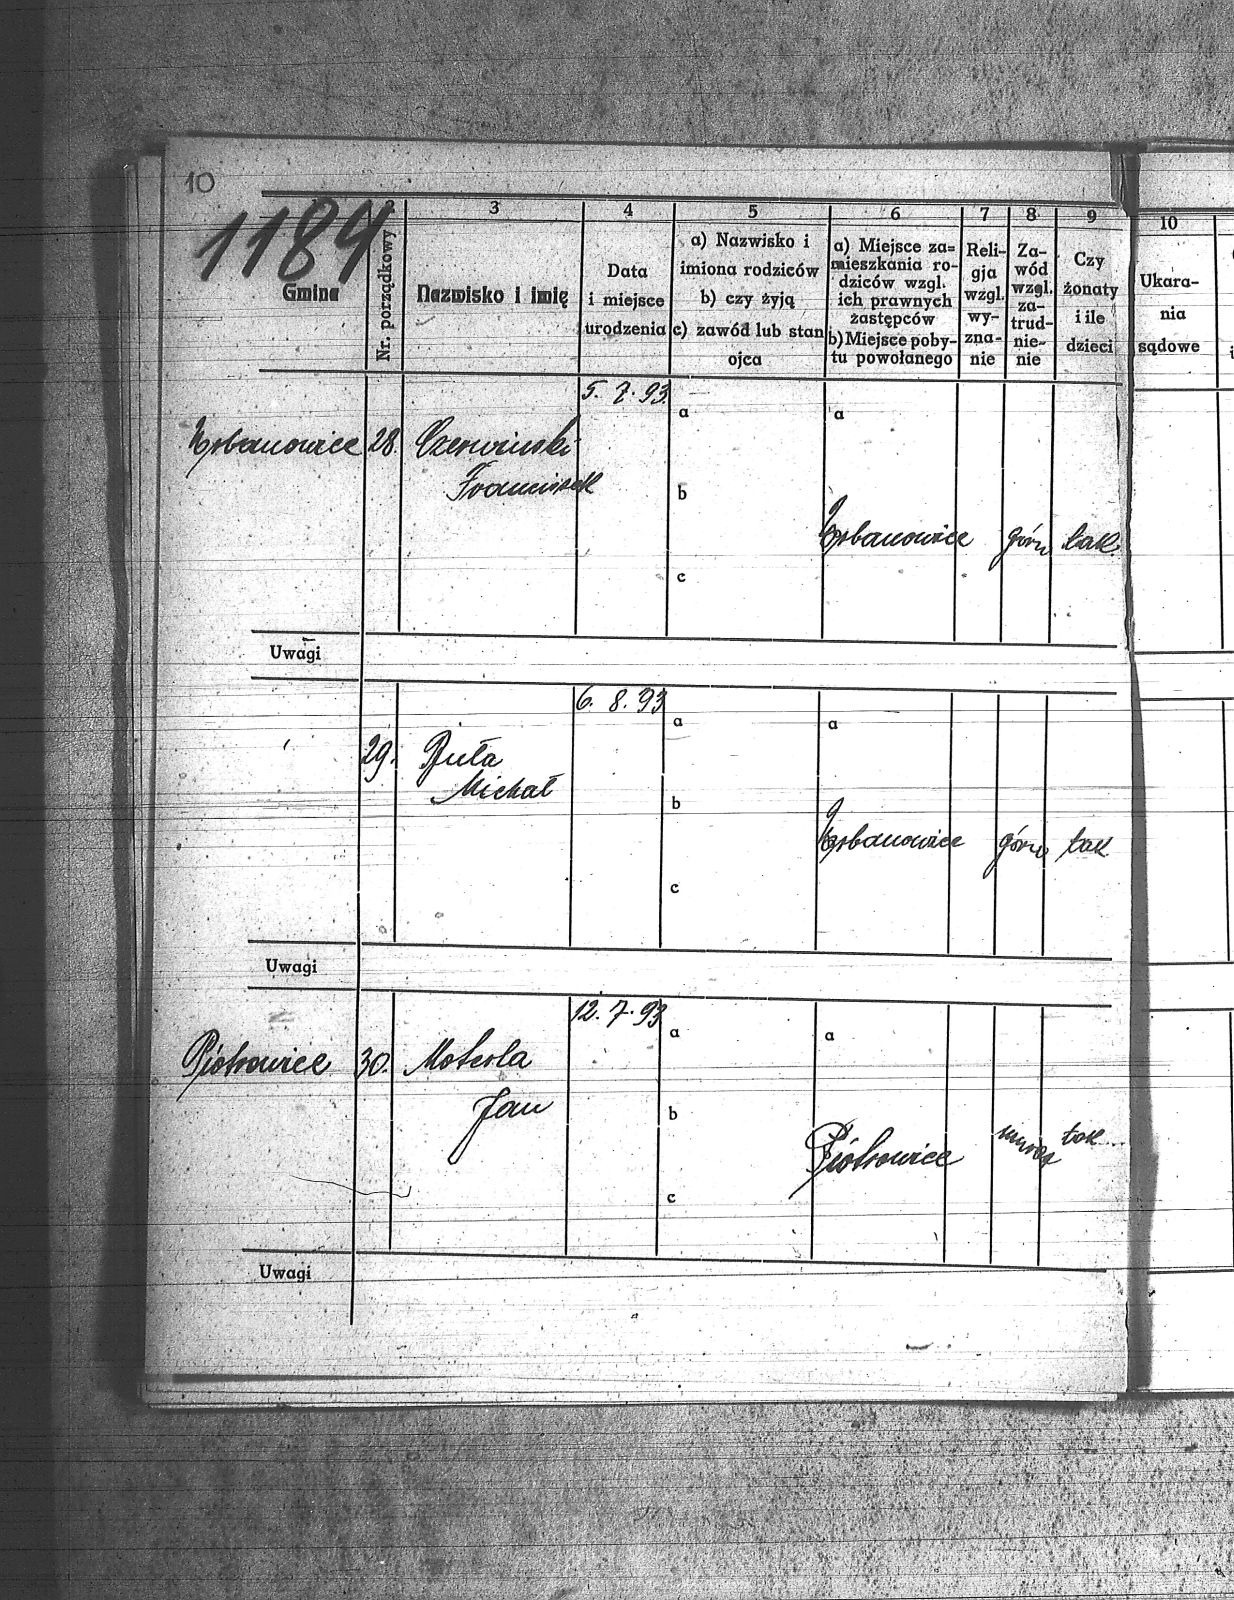 10
1184
2 3 4 5 6 7 8 9 10
Gmina
Nr. porządkowy
Nazwisko i imię
Data
i miejsce
urodzenia
a) Nazwisko i
imiona rodziców
b) czy żyją
c) zawód lub stan
ojca
a) Miejsce za=
mieszkania ro-
dziców wzgl.
ich prawnych
zastępców
b) Miejsce poby-
tu powołanego
Reli-
gja
wzgl.
wy-
zna-
nie
Za-
wód
wzgl.
za-
trud-
nie-
nie
Czy
żonaty
i ile
dzieci
Ukara-
nia
sądowe
5. 7. 93.
a a
Urbanowice 28. Czerwinski
Franciszek
b
Urbanowice górn tak.
c
Uwagi
6. 8. 93
a a
29. Ryuła
Michał
b
Urbanowice górn tak.
c
Uwagi
12. 7. 93
a a
Piotrowice 30. Moterla
Jan
b
Piotrowice murarz tak
c
Uwagi